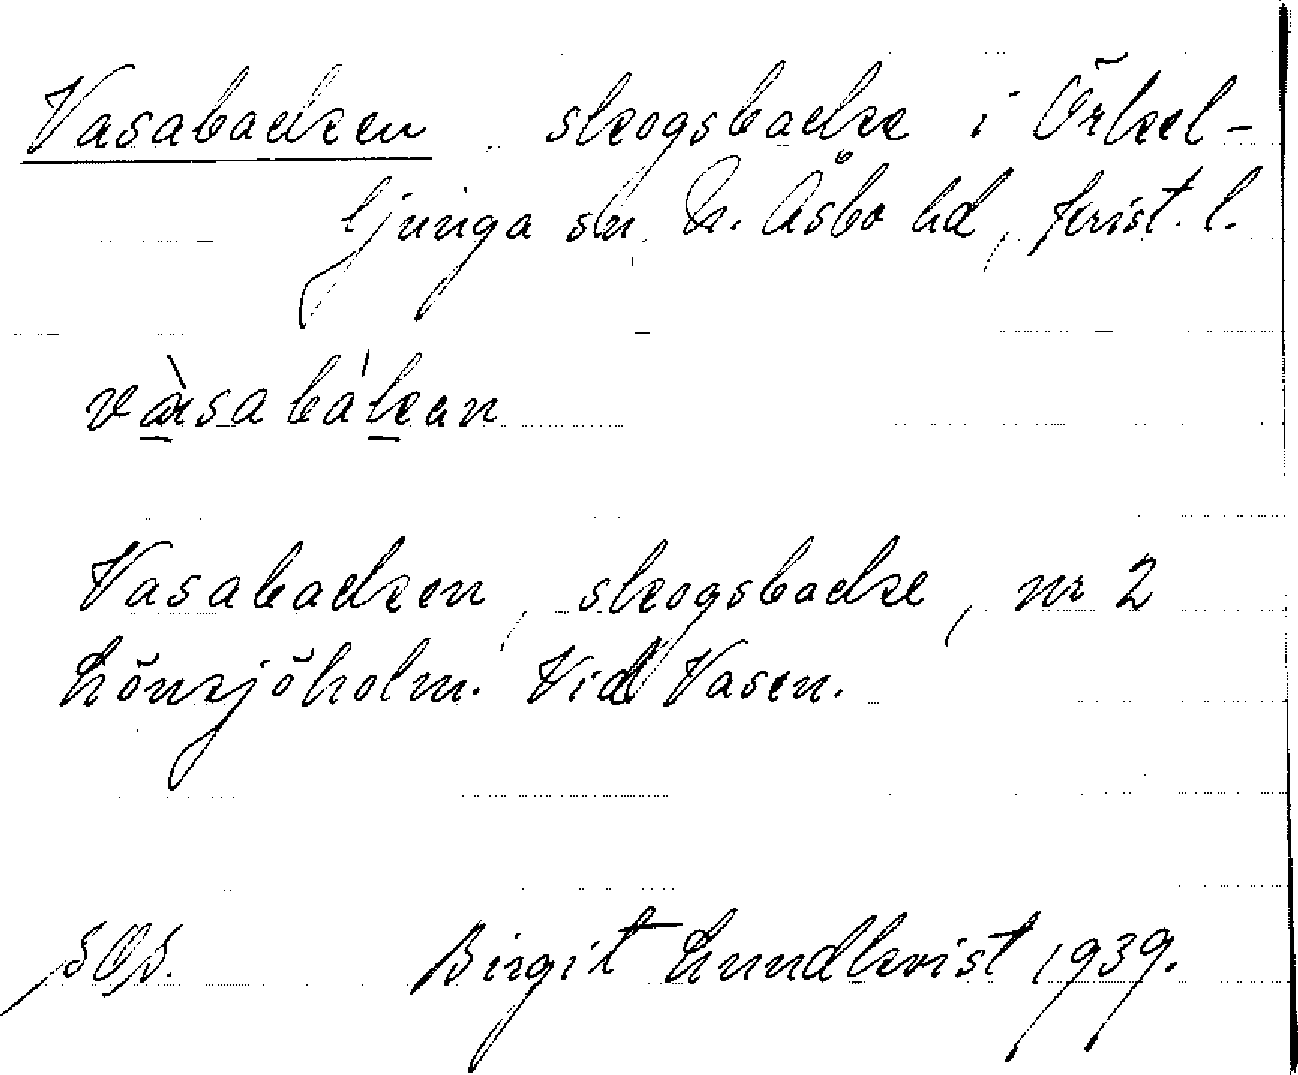 Vasabacken skogsbacke i Örkel-
ljunga sn, N. Åsbo hd, Krist. l.
vàsabákan
Vasabacken, skogsbacke, nr 2
Lönsjöholm. Vid Vasen.
SOS. Birgit Lundkvist 1939.